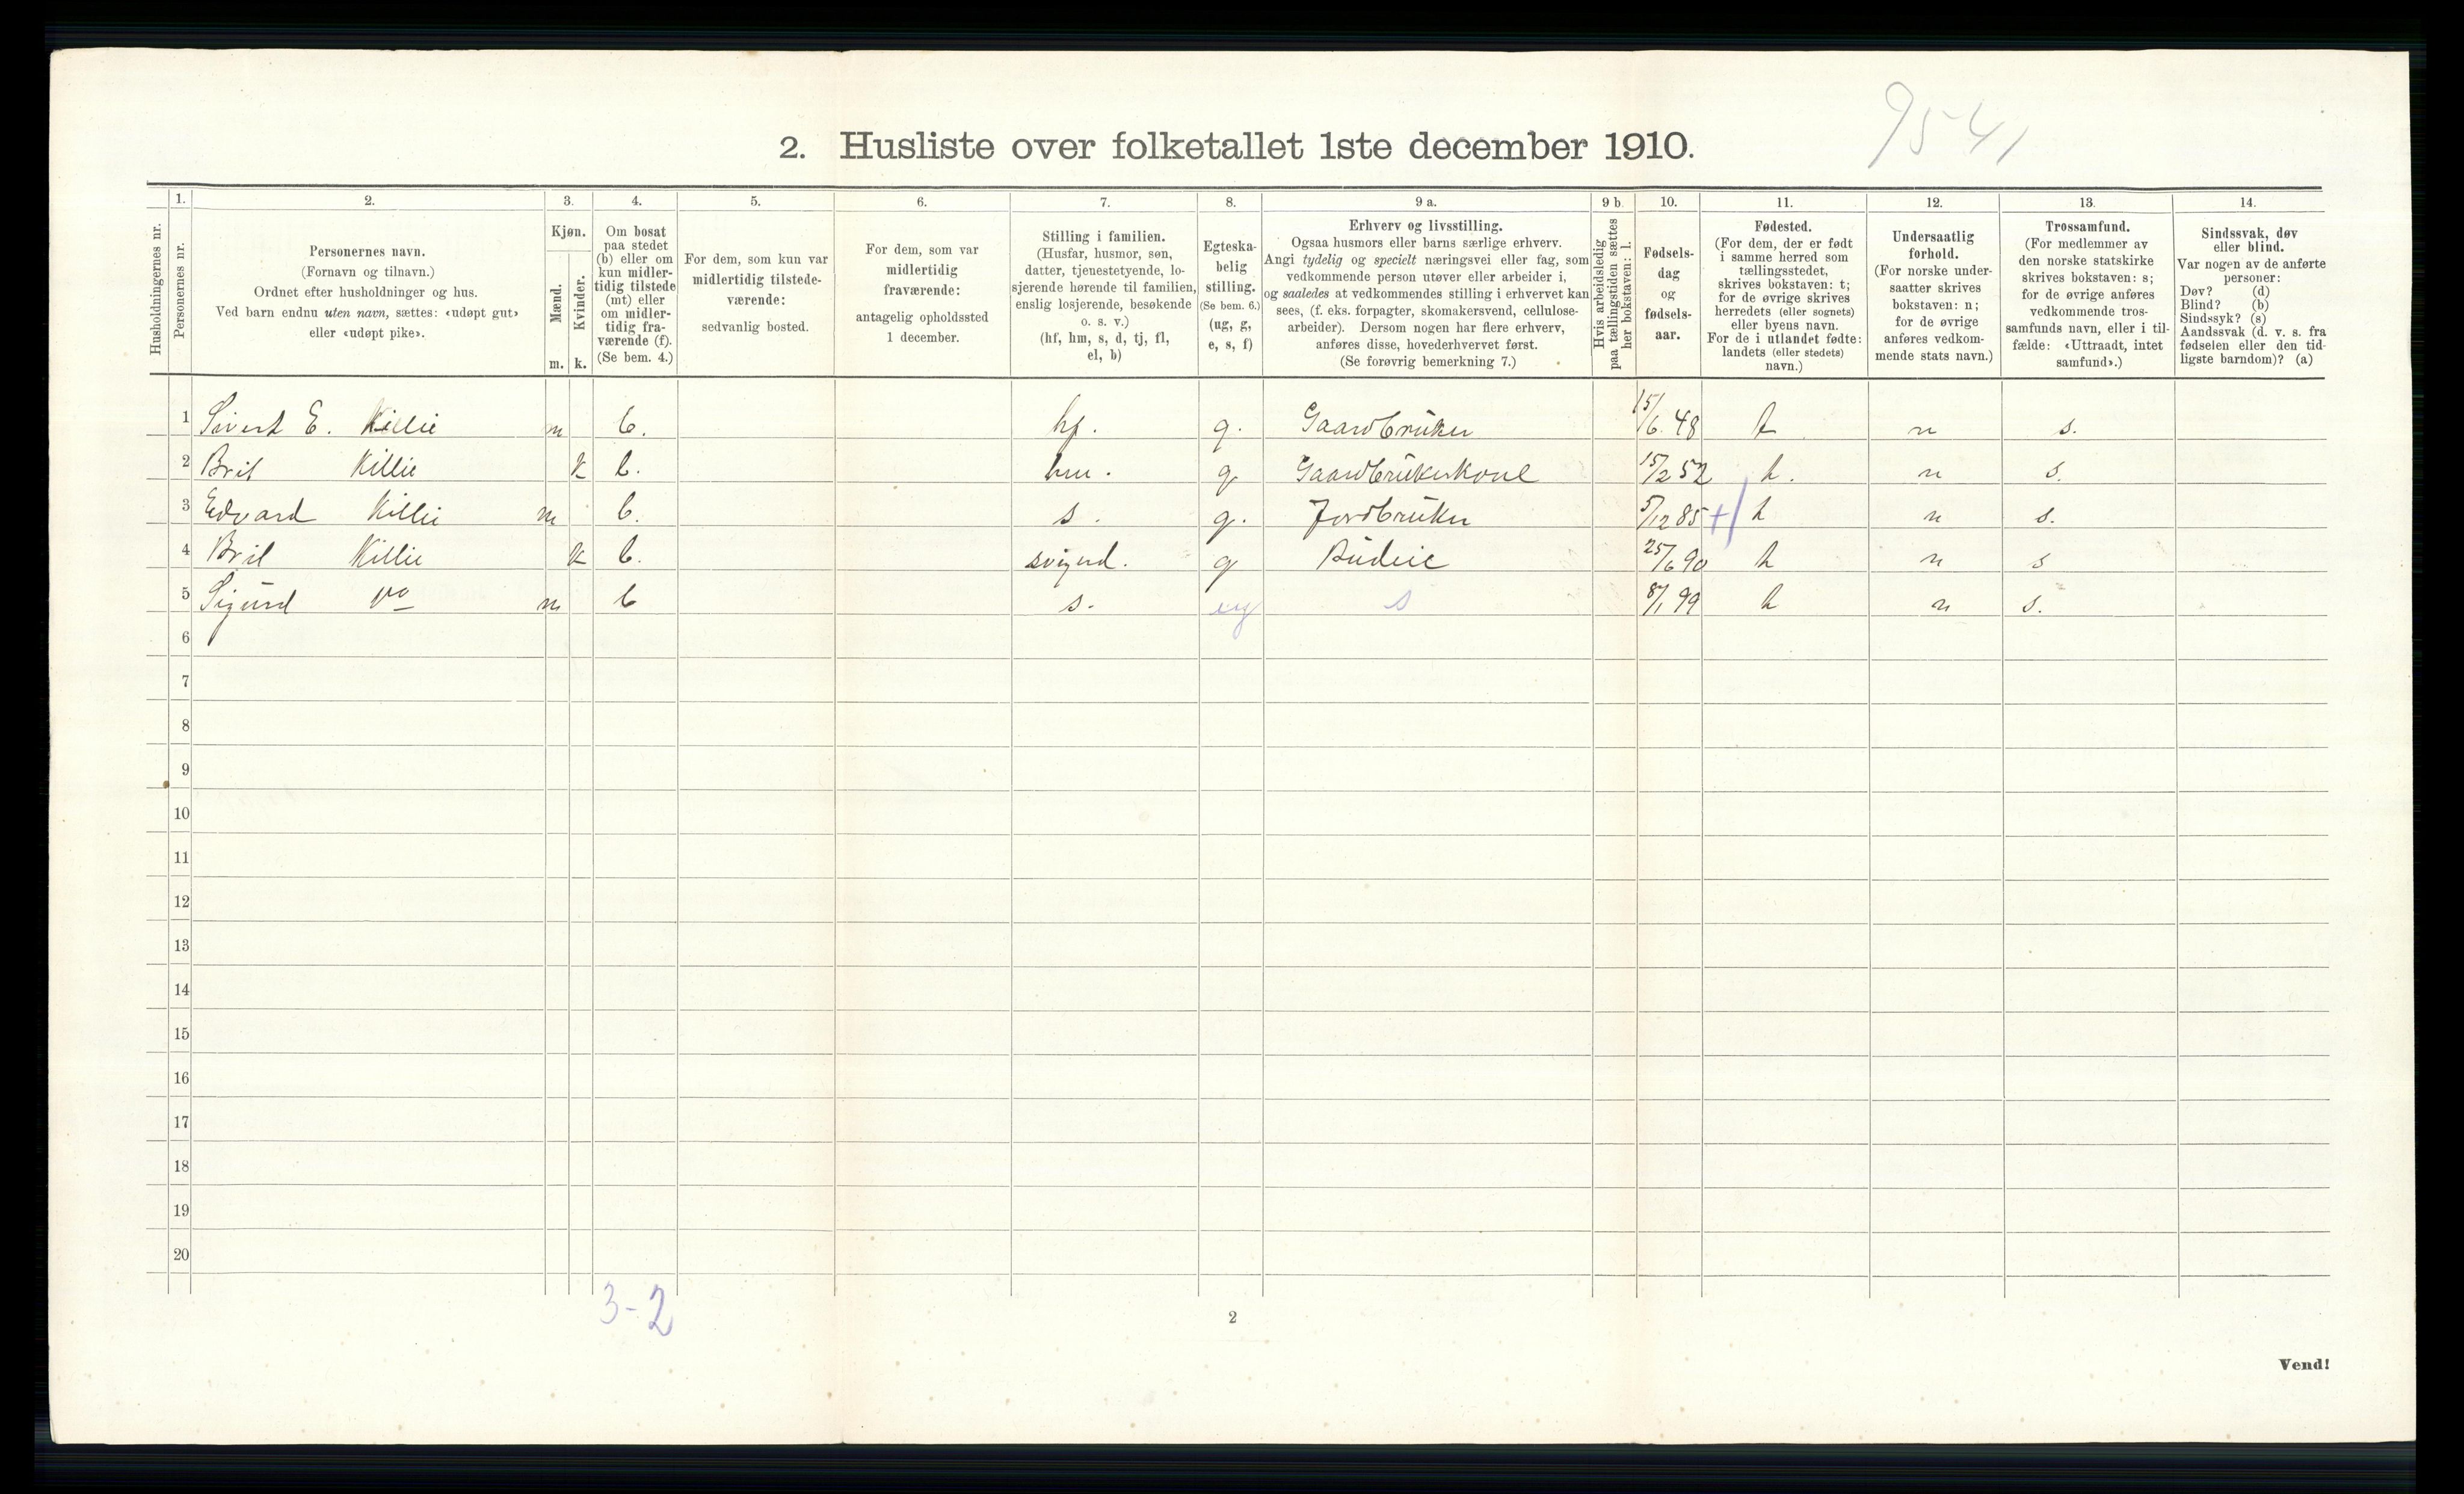 9541
2. Husliste over folketallet 1ste december 1910.
Husholdningernes nr.
1.
Personernes nr.
2.
Personernes navn.
(Fornavn og tilnavn.)
Ordnet efter husholdninger og hus.
Ved barn endnu uten navn, sættes: «udøpt gut»
eller «udøpt pike».
3.
Kjøn.
Mænd.
m.
Kvinder.
k.
4.
Om bosat
paa stedet
(b) eller om
kun midler-
tidig tilstede
(mt) eller
om midler-
tidig fra-
værende (f).
(Se bem. 4.)
5.
For dem, som kun var
midlertidig tilstede-
værende:
sedvanlig bosted.
6.
For dem, som var
midlertidig
fraværende:
antagelig opholdssted
1 december.
7.
Stilling i familien.
(Husfar, husmor, søn,
datter, tjenestetyende, lo-
sjerende hørende til familien,
enslig losjerende, besøkende
o. s. v.)
(hf, hm, s, d, tj, fl,
el, b)
8.
Egteska-
belig
stilling.
(Se bem. 6.)
(ug, g,
e, s, f)
9 a.
Erhverv og livsstilling.
Ogsaa husmors eller barns særlige erhverv.
Angi tydelig og specielt næringsvei eller fag, som
vedkommende person utøver eller arbeider i,
og saaledes at vedkommendes stilling i erhvervet kan
sees, (f. eks. forpagter, skomakersvend, cellulose-
arbeider). Dersom nogen har flere erhverv,
anføres disse, hovederhvervet først.
(Se forøvrig bemerkning 7.)
9 b.
Hvis arbeidsledig
paa tællingstiden sættes
her bokstaven: l.
10.
Fødsels-
dag
og
fødsels-
aar.
11.
Fødested.
(For dem, der er født
i samme herred som
tællingsstedet,
skrives bokstaven: t;
for de øvrige skrives
herredets (eller sognets)
eller byens navn.
For de i utlandet fødte:
landets (eller stedets)
navn.)
12.
Undersaatlig
forhold.
(For norske under-
saatter skrives
bokstaven: n;
for de øvrige
anføres vedkom-
mende stats navn.)
13.
Trossamfund.
(For medlemmer av
den norske statskirke
skrives bokstaven: s;
for de øvrige anføres
vedkommende tros-
samfunds navn, eller i til-
fælde: «Uttraadt, intet
samfund».)
14.
Sindssvak, døv
eller blind.
Var nogen av de anførte
personer:
Døv? (d)
Blind? (b)
Sindssyk? (s)
Aandssvak (d. v. s. fra
fødselen eller den tid-
ligste barndom)? (a)
1 Sivert E. Killie m b. hf. g. Gaardbruker 15/6 48 t n s.
2 Brit Killie k b. hm. g Gaardbrukerkone 15/2 52 t. n s.
3 Edvard Killie m b. s. g. Jordbruker 5/12 85 t n s.
4 Brit Killie k b. svigerd. g Budeie 25/6 90 t n s
5 Sigurd do m b s. ug s 8/1 99 t n s.
6
7
8
9
10
11
12
13
14
15
16
17
18
19
20
3-2
2
Vend!